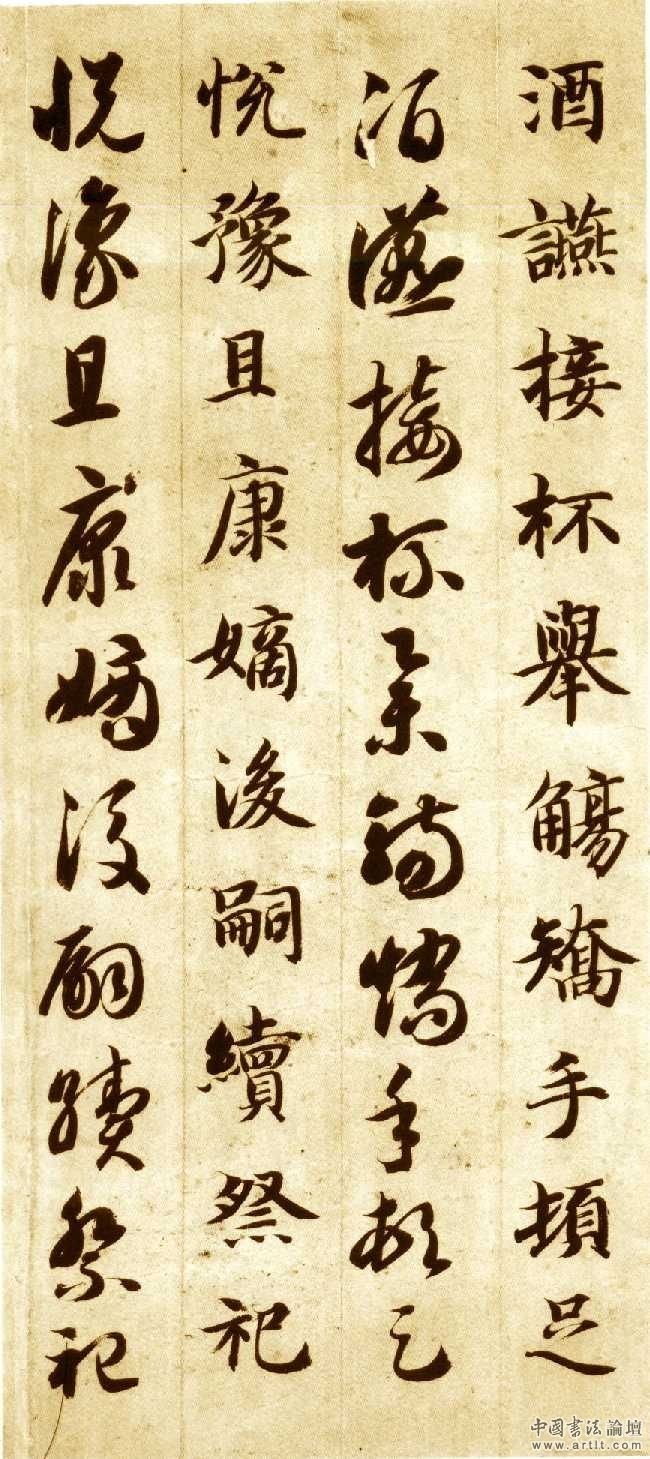 酒讌接杯舉觴矯手頓足
酒讌接杯舉觴矯手頓足
悅豫且康嫡後嗣續祭祀
悅豫且康嫡後嗣續祭祀
中國書法論壇
www.artlt.com